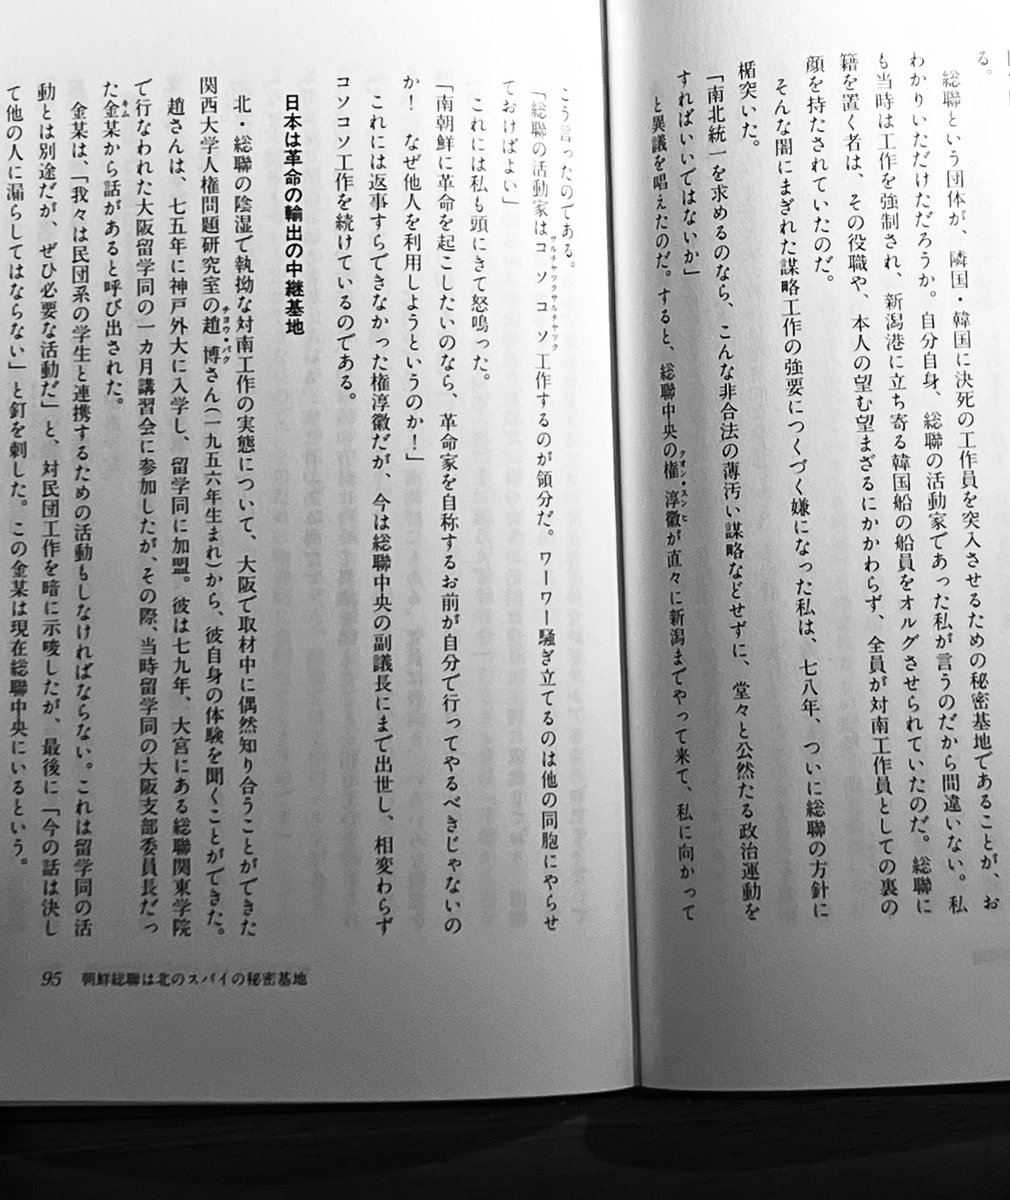 る。
総聯という団体が、隣国・韓国に決死の工作員を突入させるための秘密基地であることが、お
わかりいただけただろうか。自分自身、総聯の活動家であった私が言うのだから間違いない。私
も当時は工作を強制され、新潟港に立ち寄る韓国船の船員をオルグさせられていたのだ。総聯に
籍を置く者は、その役職や、本人の望む望まざるにかかわらず、全員が対南工作員としての裏の
顔を持たされていたのだ。
そんな闇にまぎれた謀略工作の強要につくづく嫌になった私は、七八年、ついに総聯の方針に
楯突いた。
「南北統一を求めるのなら、こんな非合法の薄汚い謀略などせずに、堂々と公然たる政治運動を
すればいいではないか」
と異議を唱えたのだ。すると、総聯中央の権淳徽が直々に新潟までやって来て、私に向かって
クオン・スンヒ
こう言ったのである。
「総聯の活動家はコソコソ工作するのが領分だ。ワーワー騒ぎ立てるのは他の同胞にやらせ
サルチヤツクサルチヤツク
ておけばよい」
これには私も頭にきて怒鳴った。
「南朝鮮に革命を起こしたいのなら、革命家を自称するお前が自分で行ってやるべきじゃないの
か！　なぜ他人を利用しようというのか！」
これには返事すらできなかった権淳徽だが、今は総聯中央の副議長にまで出世し、相変わらず
コソコソ工作を続けているのである。
日本は革命の輸出の中継基地
北・総聯の陰湿で執拗な対南工作の実態について、大阪で取材中に偶然知り合うことができた
関西大学人権問題研究室の趙博さん（一九五六年生まれ）から、彼自身の体験を聞くことができた。
チヨウ・パク
趙さんは、七五年に神戸外大に入学し、留学同に加盟。彼は七九年、大宮にある総聯関東学院
で行なわれた大阪留学同の一カ月講習会に参加したが、その際、当時留学同の大阪支部委員長だっ
た金某から話があると呼び出された。
キム
金某は、「我々は民団系の学生と連携するための活動もしなければならない。これは留学同の活
動とは別途だが、ぜひ必要な活動だ」と、対民団工作を暗に示唆したが、最後に「今の話は決し
て他の人に漏らしてはならない」と釘を刺した。この金某は現在総聯中央にいるという。
95　朝鮮総聯は北のスパイの秘密基地